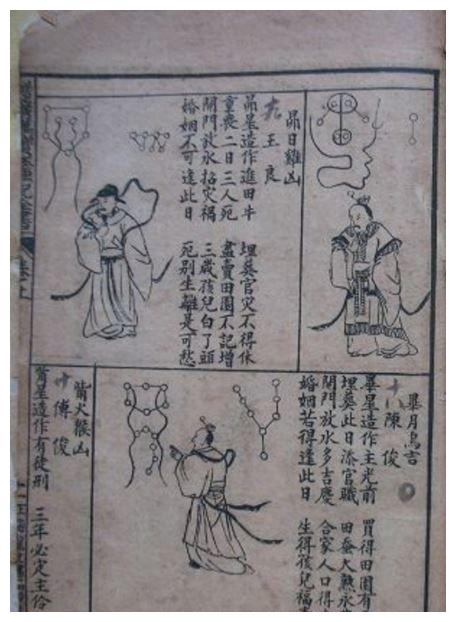 昴日雞凶
王良
昴星造作進田牛 埋葬官災不得休
重喪二日三人死 盡賣田園不記增
開門放水招災禍 三歲孩兒白了頭
婚姻不可逢此日 死別生離是可愁
畢月烏吉
陳俊
畢星造作主光前 買得田園有
埋葬此日添官職 田蚕大熟永
開門放水多吉慶 合家人口得
婚姻若得逢此日 生得孩兒福
觜火猴凶
傅俊
觜星造作有徒刑 三年必定主伶